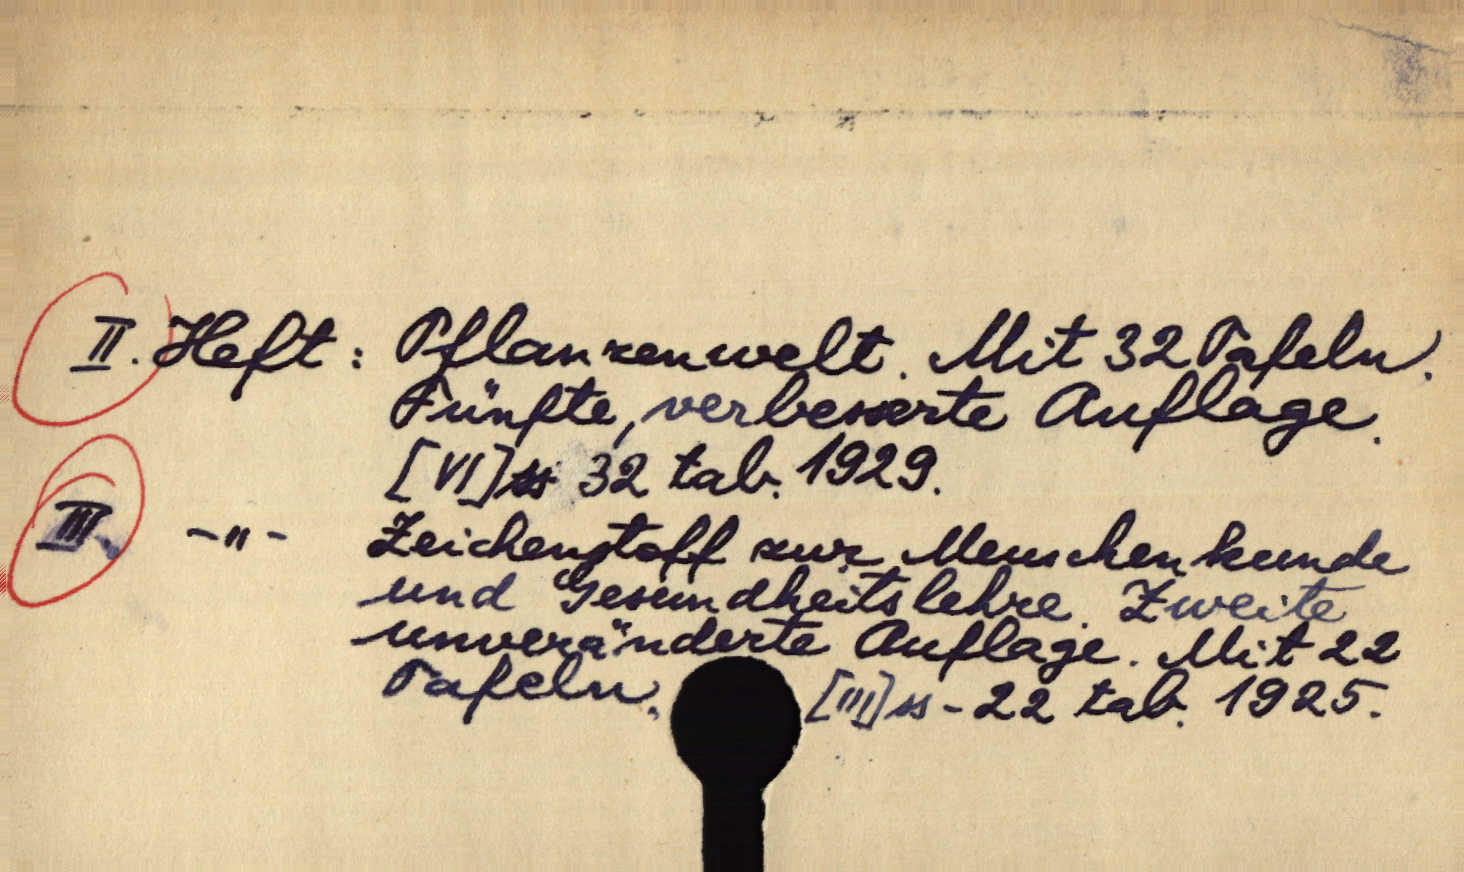 II. Heft: Pflanzenwelt. Mit 32 Tafeln.
Fünfte, verbesserte Auflage.
[VI] ss 32 tab. 1929.
III. -"- Zeichenstoff zur Menschenkunde
und Gesundheitslehre. Zweite
unveränderte Auflage. Mit 22
Tafeln. [III] ss - 22 tab. 1925.